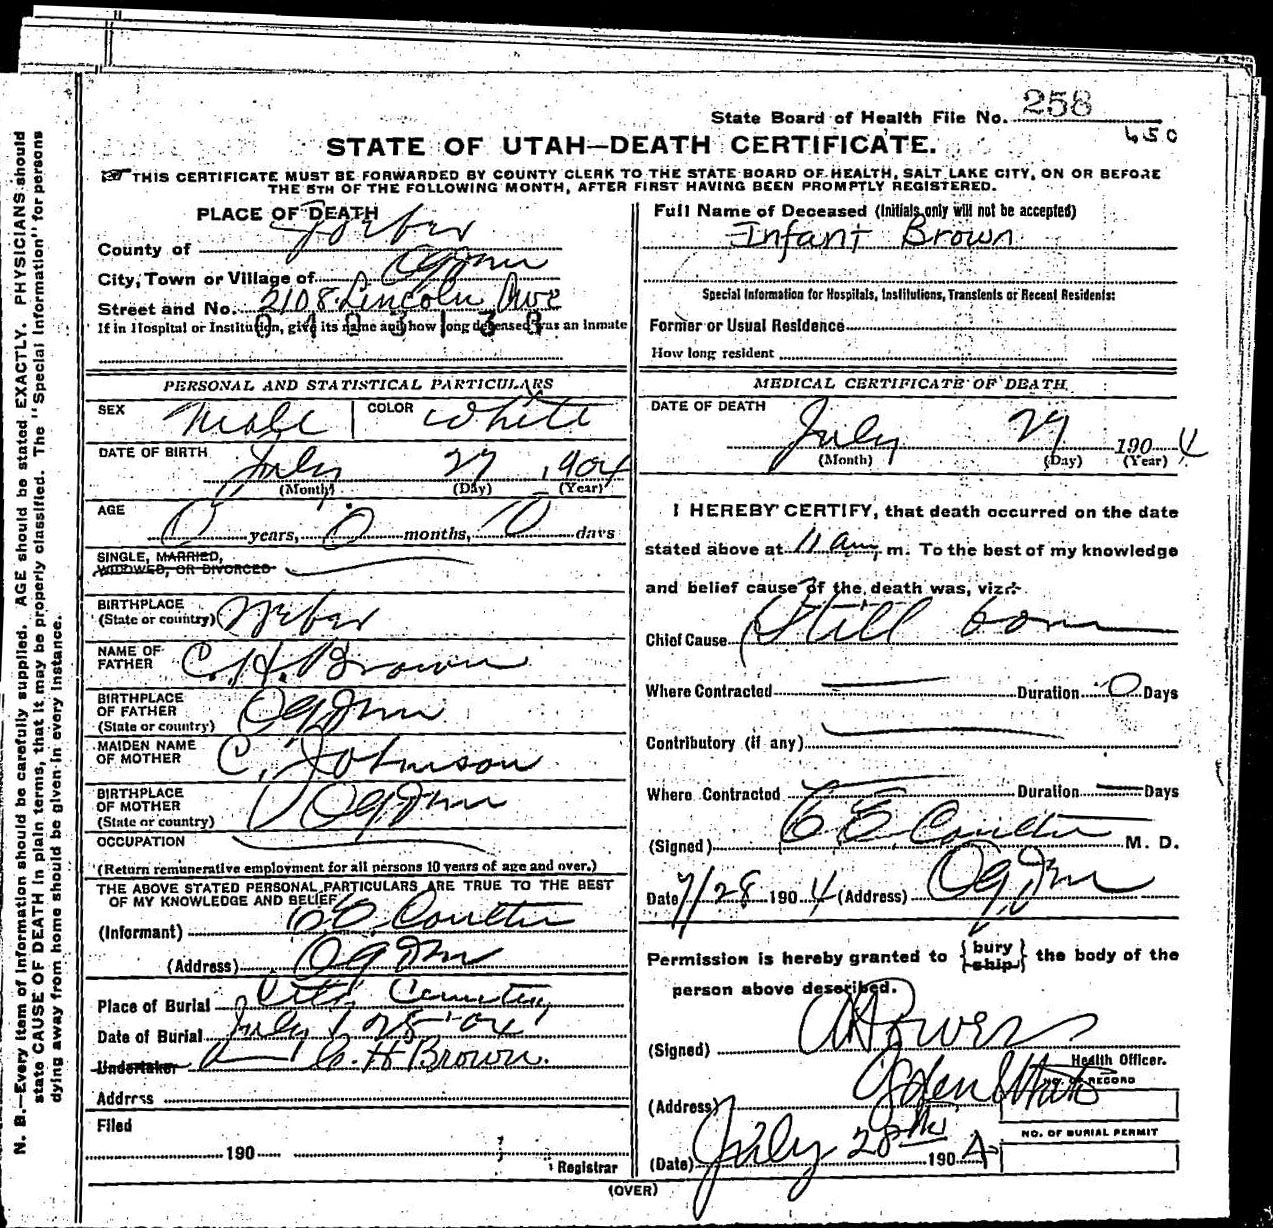 State Board of Health File No. 258
650
STATE OF UTAH—DEATH CERTIFICATE.
THIS CERTIFICATE MUST BE FORWARDED BY COUNTY CLERK TO THE STATE BOARD OF HEALTH, SALT LAKE CITY, ON OR BEFORE
THE 5TH OF THE FOLLOWING MONTH, AFTER FIRST HAVING BEEN PROMPTLY REGISTERED.
N. B.—Every item of information should be carefully supplied. AGE should be stated EXACTLY. PHYSICIANS should
state CAUSE OF DEATH in plain terms, that it may be properly classified. The "Special Information" for persons
dying away from home should be given in every instance.
PLACE OF DEATH
County of Weber
City, Town or Village of Ogden
Street and No. 2108 Lincoln Ave
If in Hospital or Institution, give its name and how long deceased was an inmate
PERSONAL AND STATISTICAL PARTICULARS
SEX Male COLOR White
DATE OF BIRTH July 27 1904
(Month) (Day) (Year)
AGE 0 years, 0 months, 0 days
SINGLE, MARRIED,
WIDOWED, OR DIVORCED
BIRTHPLACE
(State or country) Weber
NAME OF
FATHER C. H. Brown
BIRTHPLACE
OF FATHER Ogden
(State or country)
MAIDEN NAME
OF MOTHER C. Johnson
BIRTHPLACE
OF MOTHER Ogden
(State or country)
OCCUPATION
(Return remunerative employment for all persons 10 years of age and over.)
THE ABOVE STATED PERSONAL PARTICULARS ARE TRUE TO THE BEST
OF MY KNOWLEDGE AND BELIEF
(Informant) C E Coulter
(Address) Ogden
Place of Burial City Cemetery
Date of Burial July 28 '04
Undertaker C. H Brown.
Address
Filed
190
Registrar
Full Name of Deceased (Initials only will not be accepted)
Infant Brown
Special Information for Hospitals, Institutions, Transients or Recent Residents:
Former or Usual Residence
How long resident
MEDICAL CERTIFICATE OF DEATH
DATE OF DEATH
July 27 1904
(Month) (Day) (Year)
I HEREBY CERTIFY, that death occurred on the date
stated above at 11 am m. To the best of my knowledge
and belief cause of the death was, viz:
Chief Cause Still born
Where Contracted Duration 0 Days
Contributory (if any)
Where Contracted Duration Days
(Signed) C E Coulter M. D.
Date 7/28 1904 (Address) Ogden
Permission is hereby granted to { bury ship } the body of the
person above described.
(Signed)
Health Officer.
(Address) Ogden Utah
NO. OF RECORD
NO. OF BURIAL PERMIT
(Date) July 28th 1904
(OVER)